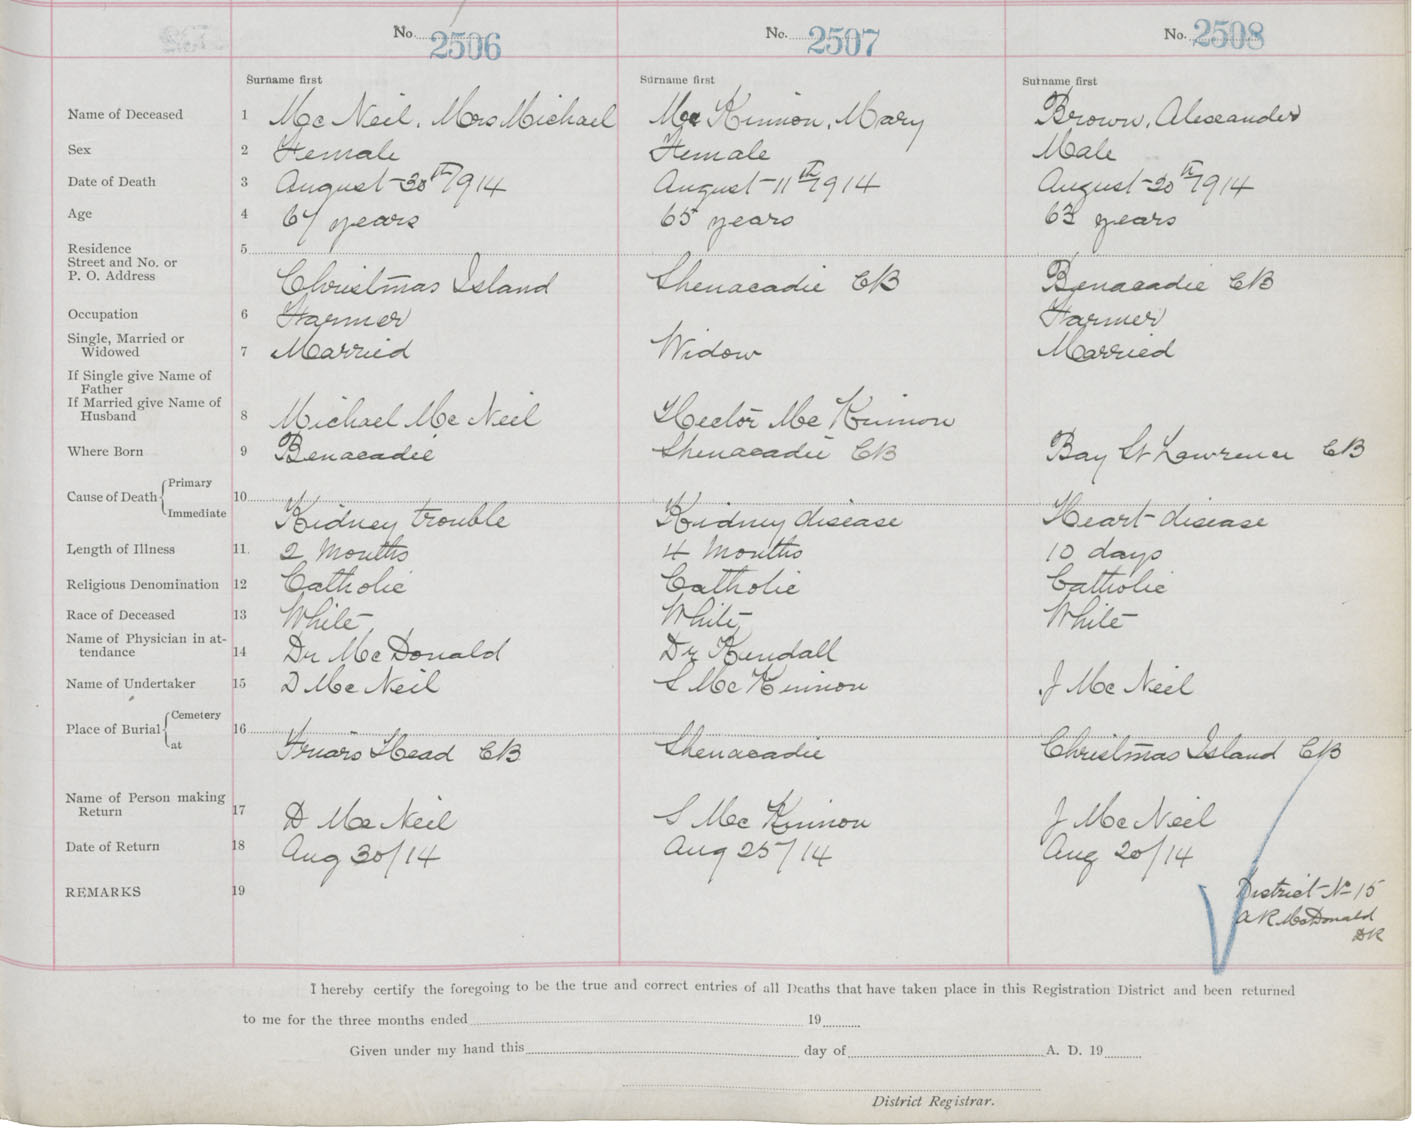 No. 2506 No. 2507 No. 2508
Surname first Surname first Surname first
Name of Deceased 1 McNeil, Mrs Michael McKinnon, Mary Brown, Alexander
Sex 2 Female Female Male
Date of Death 3 August 30th 1914 August 11th 1914 August 20th 1914
Age 4 67 years 65 years 63 years
Residence 5
Street and No. or
P. O. Address Christmas Island Shenacadie CB Benacadie CB
Occupation 6 Farmer Farmer
Single, Married or
Widowed 7 Married Widow Married
If Single give Name of
Father
If Married give Name of
Husband 8 Michael McNeil Hector McKinnon
Where Born 9 Benacadie Shenacadie CB Bay St Lawrence CB
Cause of Death Primary 10
Immediate Kidney trouble Kidney disease Heart disease
Length of Illness 11. 2 Months 4 Months 10 days
Religious Denomination 12 Catholic Catholic Catholic
Race of Deceased 13 White White White
Name of Physician in at-
tendance 14 Dr McDonald Dr Kendall
Name of Undertaker 15 D McNeil S McKinnon J McNeil
Place of Burial Cemetery 16
at Friars Head CB Shenacadie Christmas Island CB
Name of Person making
Return 17 D McNeil S McKinnon J McNeil
Date of Return 18 Aug 30/14 Aug 25/14 Aug 20/14
REMARKS 19 District No 15
A R McDonald
DR
I hereby certify the foregoing to be the true and correct entries of all Deaths that have taken place in this Registration District and been returned
to me for the three months ended 19
Given under my hand this day of A. D. 19
District Registrar.